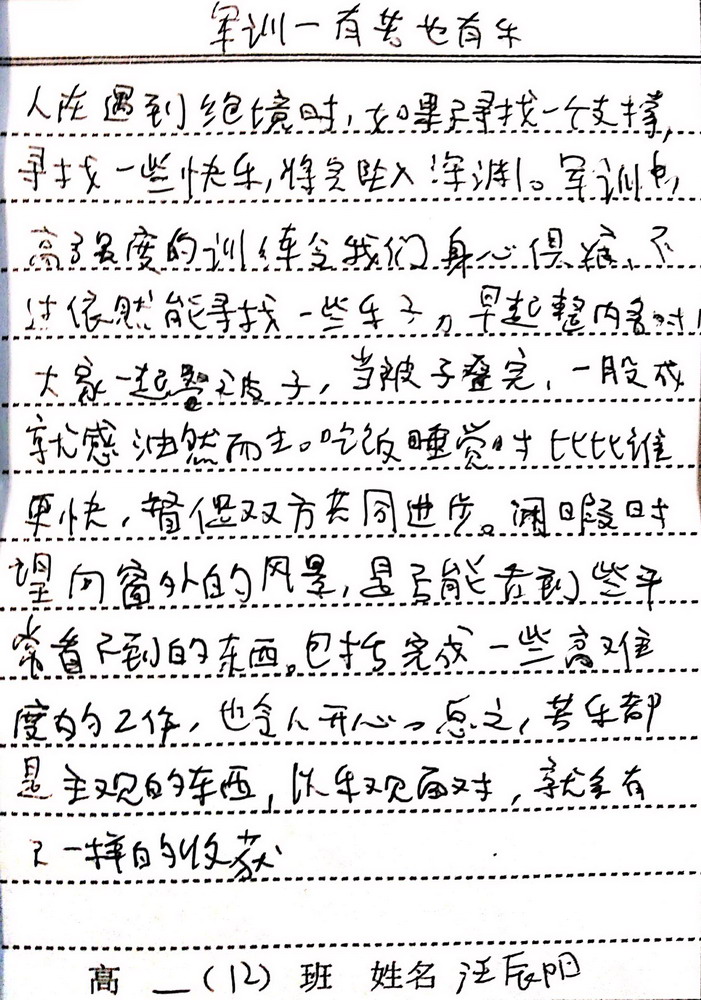 军训—有苦也有乐
人在遇到绝境时，如果不寻找一个支撑，
寻找一些快乐，将会坠入深渊。军训中，
高强度的训练令我们身心俱疲，不
过依然能寻找一些乐子。早起整内务时，
大家一起叠被子，当被子叠完，一股成
就感油然而生。吃饭睡觉时比比谁
更快，督促双方共同进步。闲暇时
望向窗外的风景，是否能看到些平
常看不到的东西。包括完成一些高难
度的工作，也令人开心。总之，苦乐都
是主观的东西，以乐观面对，就会有
不一样的收获
高 一（12） 班 姓名 汪辰阳